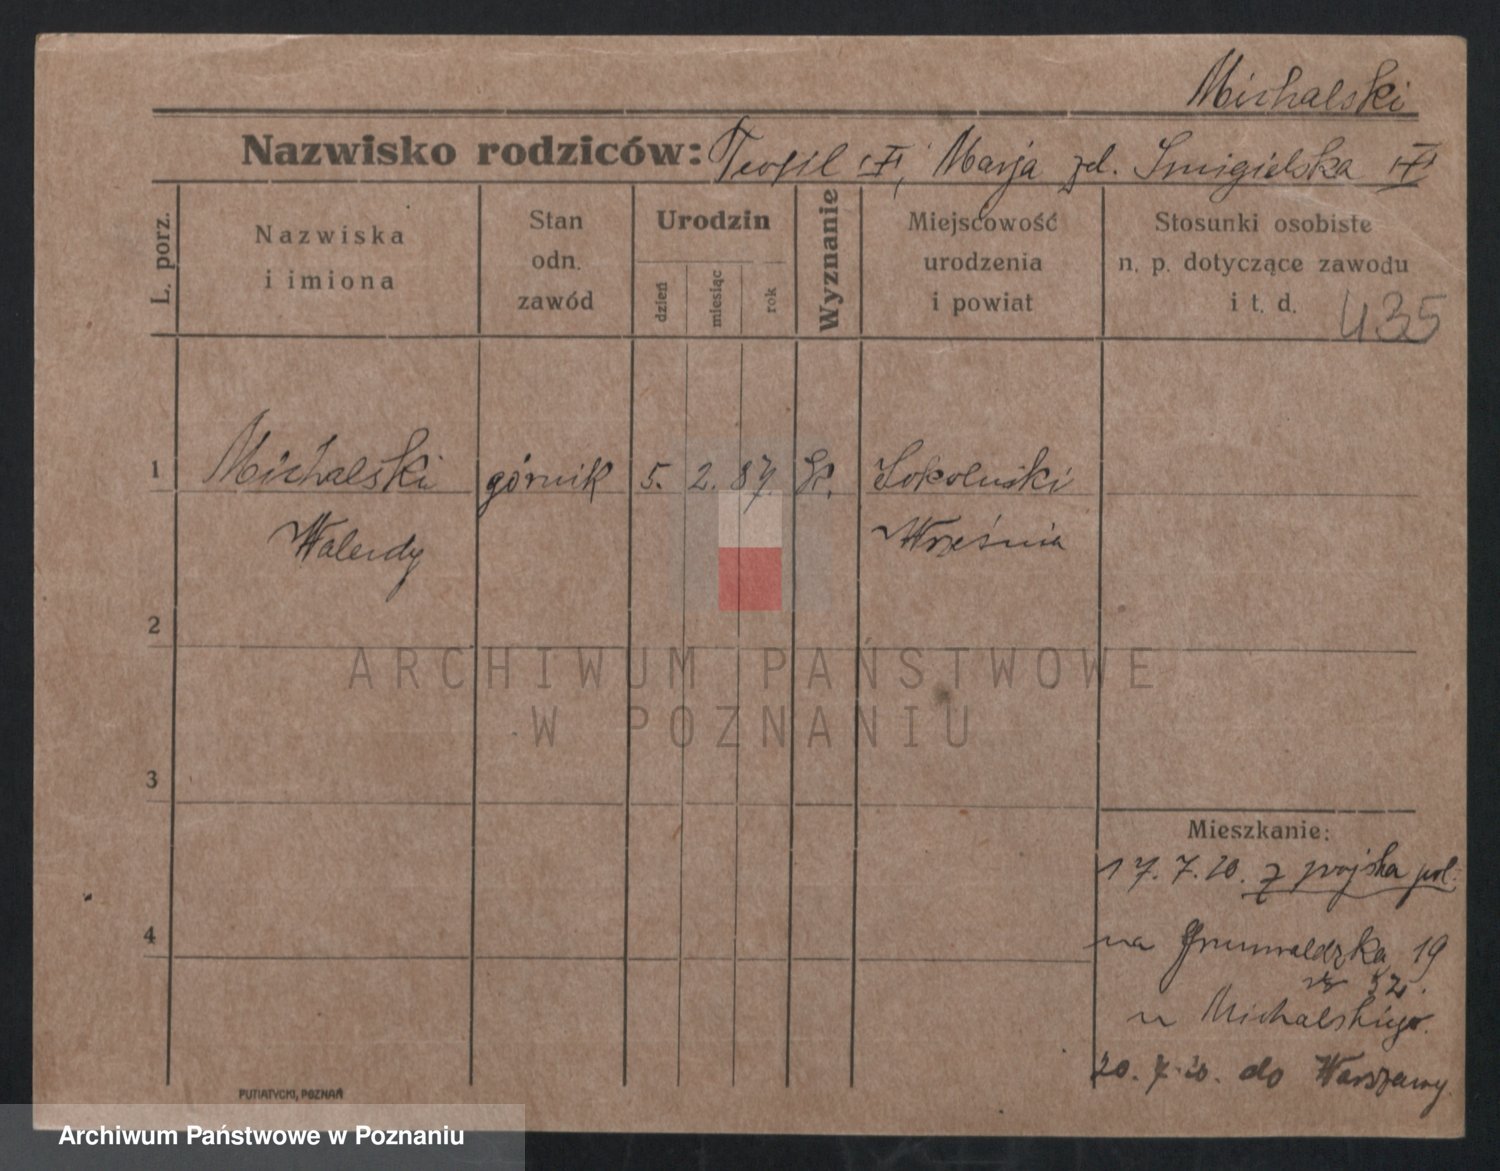 Michalski
Nazwisko rodziców: Teofil , Marja zd. Smigielska
L. porz.
Nazwiska
i imiona
Stan
odn.
zawód
Urodzin
dzień
miesiąc
rok
Wyznanie
Miejscowość
urodzenia
i powiat
Stosunki osobiste
n. p. dotyczące zawodu
i t. d.
435
1 Michalski górnik 5. 2. 87. Sokolniki
Walenty Września
2
ARCHIWUM PAŃSTWOWE
W POZNANIU
3
Mieszkanie:
17. 7. 20. z wojska pol.
4
na Grunwaldzka 19
u Michalskiego.
20. 7. 20. do Warszawy.
PUTIATYCKI, POZNAŃ
Archiwum Państwowe w Poznaniu